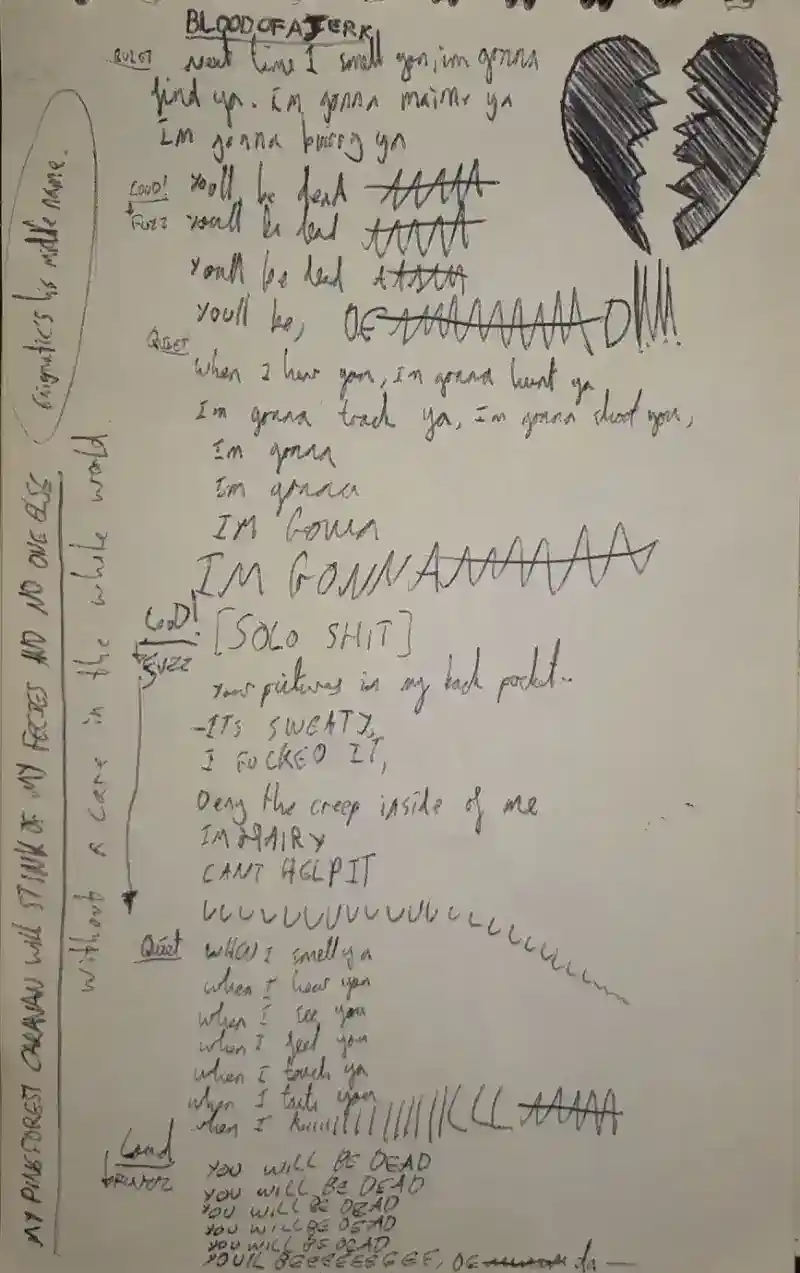 BLOOD OF A JERK
QUIET
next time I smell you, im gonna
find ya. Im gonna maime ya
Im gonna burry ya
LOUD!
FUZZ
Youll be dead
Youll be dead
Youll be dead
Youll be, DE D!!!!
QUIET
When I hear you, I'm gonna hunt ya
I'm gonna track ya, I'm gonna shoot you,
Im gonna
Im gonna
IM Gonna
IM GONNA
LOUD!
FUZZ
[SOLO SHIT]
Your pictures in my back pocket..
-ITS SWEATY,
I FUCKED IT,
Deny the creep inside of me
IM HAIRY
CANT HELP IT
Quiet
WHEN I smell ya
when I hear you
when I see you
when I feel you
when I touch ya
when I taste you
when I kiiiiillllllllllLLL
Loud
YOU WILL BE DEAD
YOU WILL BE DEAD
YOU WILL BE DEAD
YOU WILL BE DEAD
YOU WILL BE DEAD
YOUIL BEEEEEEEEE, DE
MY PINEFOREST CARAVAN WILL STINK OF MY FECIES AND NO ONE ELSE
without a care in the whole world
enigmatic's his middle name.